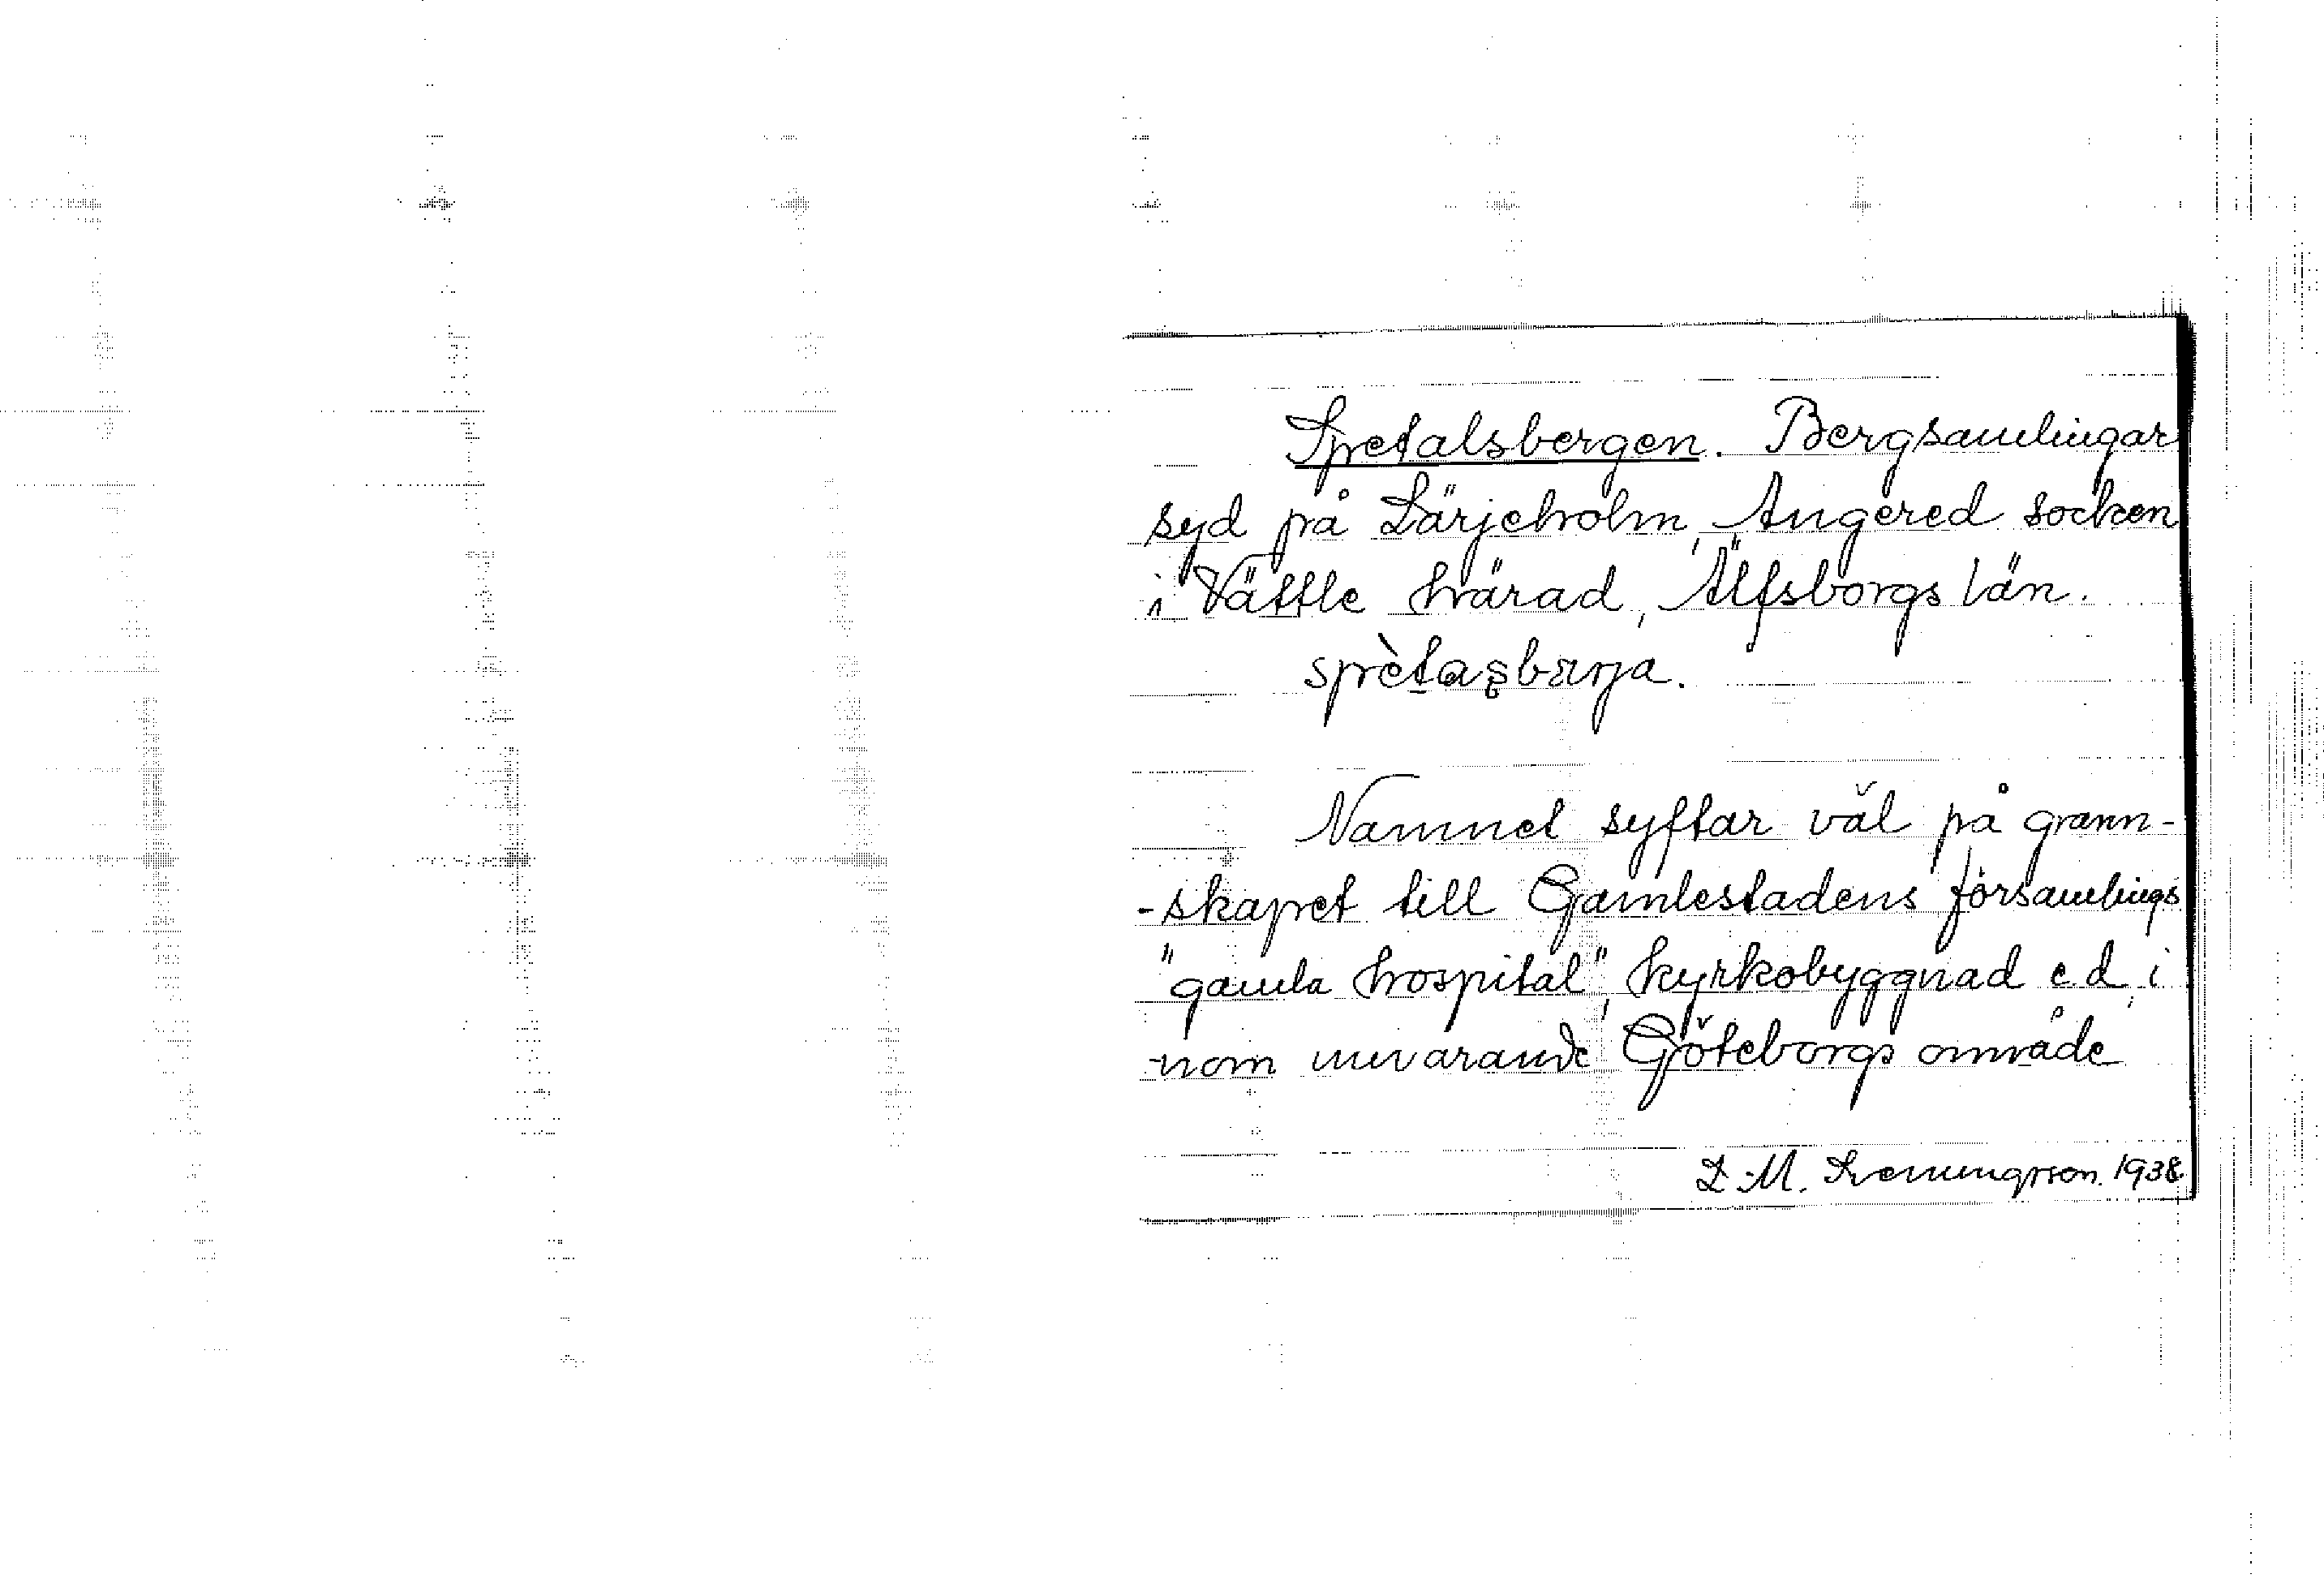 Spetalsbergen. Bergsamlingar
syd på Lärjeholm, Angered socken
i Vättle härad, Älfsborgs län.
spètasbærja.
Namnet syftar väl på grann-
-skapet till Gamlestadens församlings
"gamla hospital", kyrkobyggnad e.d., i
-nom nuvarande Göteborgs område
1938